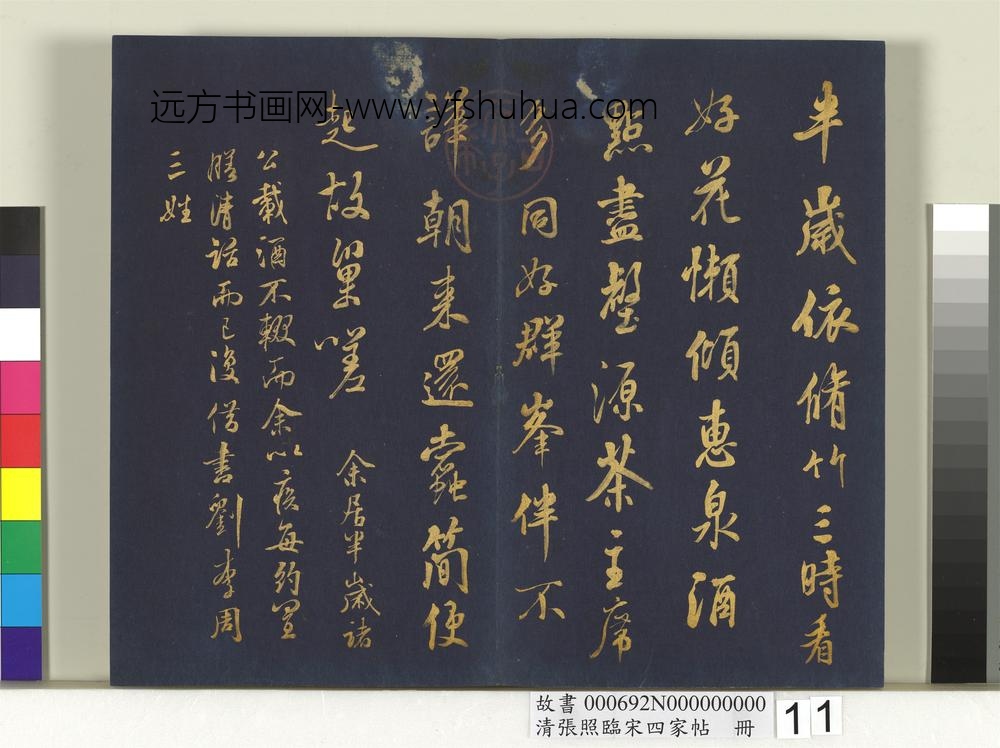 半歲依脩竹三時看
好花懶傾惠泉酒
點盡壑源茶主席
多同好群峯伴不
譁朝来還蠹簡便
起故巢嗟
余居半歲諸
公載酒不輟而余以疾每約置
膳清話而已復借書劉李周
三姓
远方书画网-www.yfshuhua.com
故書 000692N000000000
清張照臨宋四家帖 冊
11